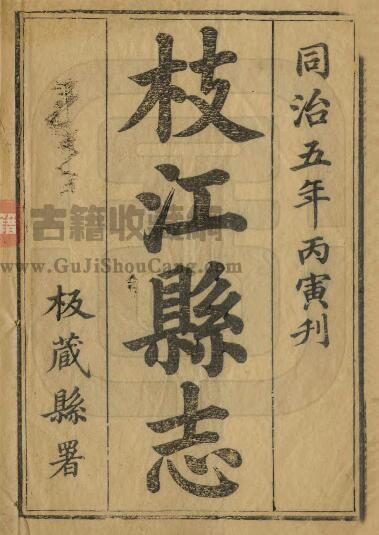 同治五年丙寅刊
枝江縣志
板藏縣署
古籍收藏網
www.GuJiShouCang.com
籍